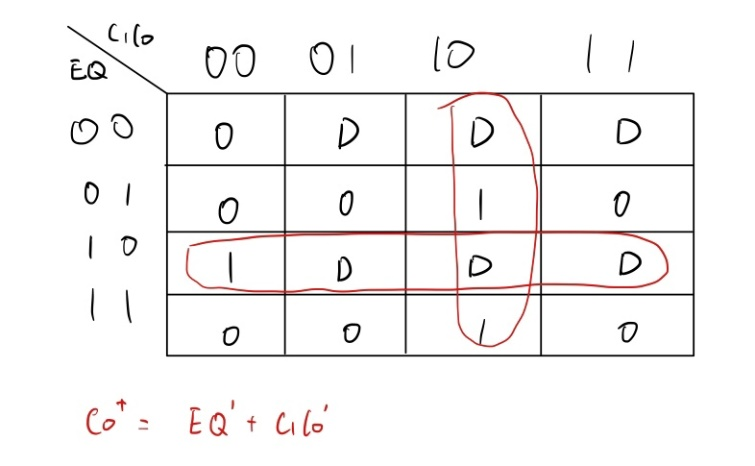 C₁C₀
EQ
00 01 10 11
00 0 D D D
01 0 0 1 0
10 1 D D D
11 0 0 1 0
C₀⁺ = EQ' + C₁C₀'